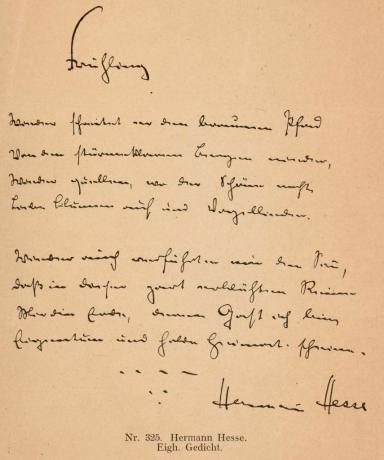 Frühling
Wieder schreitet er den braunen Pfad
Von den stürmeklaren Bergen nieder,
Wieder quellen, wo der Schöne naht,
Liebe Blumen auf und Vogellieder.
Wieder auch verführt er mir den Sinn,
daß in dieser zart erblühten Reine
Mir die Erde, deren Gast ich bin
Eigentum und holde Heimat scheine.
Hermann Hesse
Nr. 325. Hermann Hesse.
Eigh. Gedicht.